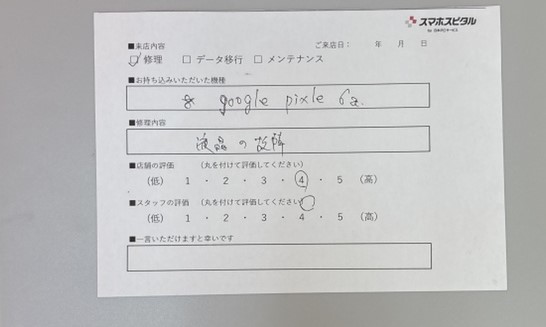 スマホスピタル
■来店内容
ご来店日： 年 月 日
修理 □ データ移行 □ メンテナンス
■お持ち込みいただいた機種
google pixle 6a.
■修理内容
液晶の故障
■店舗の評価 （丸を付けて評価してください）
（低） 1 ・ 2 ・ 3 ・ 4 ・ 5 （高）
■スタッフの評価 （丸を付けて評価してください）
（低） 1 ・ 2 ・ 3 ・ 4 ・ 5 （高）
■一言いただけますと幸いです